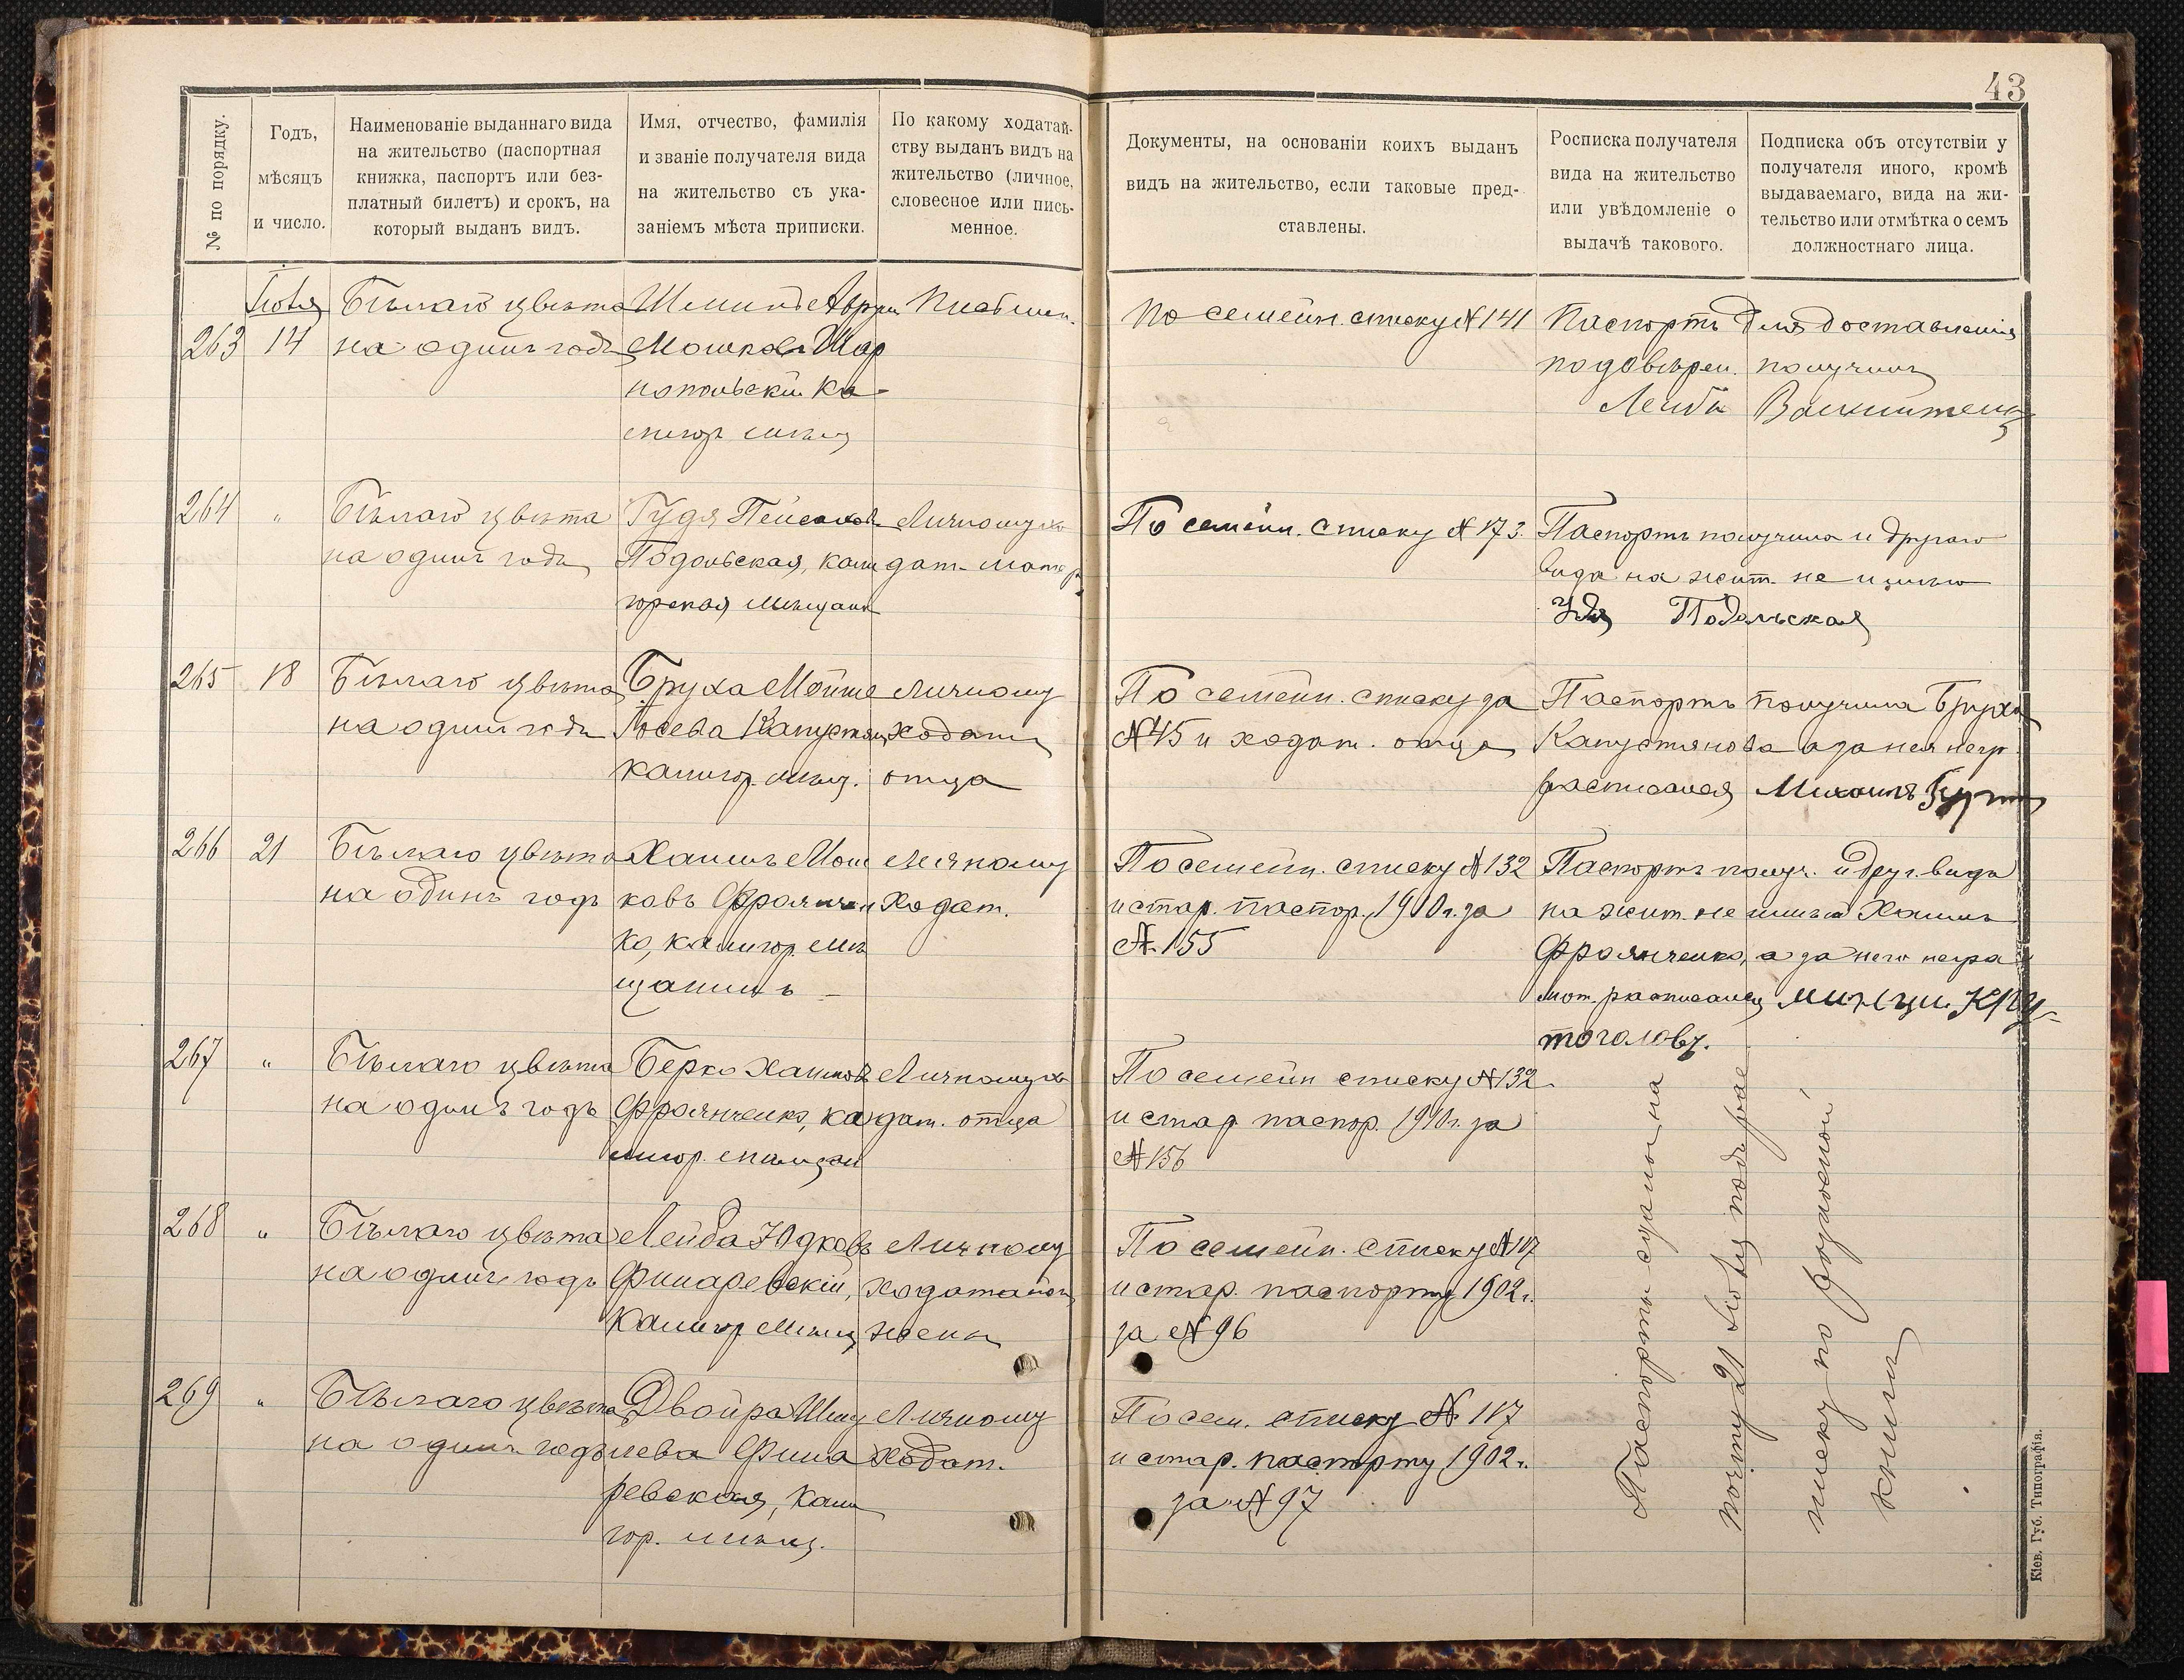 43
№ по порядку.
Годъ,
мѣсяцъ
и число.
Наименованіе выданнаго вида
на жительство (паспортная
книжка, паспортъ или без-
платный билетъ) и срокъ, на
который выданъ видъ.
Имя, отчество, фамилія
и званіе получателя вида
на жительство съ ука-
заніемъ мѣста приписки.
По какому ходатай-
ству выданъ видъ на
жительство (личное,
словесное или пись-
менное.
Документы, на основаніи коихъ выданъ
видъ на жительство, если таковые пред-
ставлены.
Росписка получателя
вида на жительство
или увѣдомленіе о
выдачѣ такового.
Подписка объ отсутствіи у
получателя иного, кромѣ
выдаваемаго, вида на жи-
тельство или отмѣтка о семъ
должностнаго лица.
Іюля
263 14
Бѣлаго цвѣта
на одинъ годъ
Мошковъ Шар
нопольскій Ка-
Письмен.
По семейн. списку № 141
Паспортъ для доставленія
по довѣрен. получилъ
Лейба
264 "
Бѣлаго цвѣта
на одинъ годъ
Гудя Пейсахов
Подольская, кали
горская мѣщан
Личному хо
дат.
По семейн. списку № 173.
Паспортъ получила и другого
вида на жит. не имѣю
Подольская
265 18
Бѣлаго цвѣта
на одинъ годъ
Бруха Мойше
Іосева Капустян
калигор. мѣщ.
Личному
ходат.
отца
По семейн. списку за
№ 45 и ходат. отца
Паспортъ получила Бруха
Капустянова а за нея негр.
расписался Михаилъ
266 21
Бѣлаго цвѣта
на одинъ годъ
Хаимъ Мош
ковъ Фраянчен
ко, калигор. мѣ
щанинъ
Личному
Ходат.
По семейн. списку № 132
и стар. паспор. 1910 г. за
№ 155
Паспортъ получ. и друг. вида
на жит. не имѣю Хаимъ
Фраянченко, а за него негра
мот. расписался
267 "
Бѣлаго цвѣта
на одинъ годъ
Берко Хаимовъ
Фраянченко, ка
лигор. мѣщан
Личному хо
дат. отца
По семейн списку № 132
и стар паспор. 1910 г. за
№ 156
268 "
Бѣлаго цвѣта
на одинъ годъ
Лейба Юдковъ
Финаревскій,
Калигор мѣщ
Личному
ходатайст
жены
По семейн. списку № 117
и стар. паспорту 1902 г.
за № 96
269 "
Бѣлаго цвѣта
на одинъ годъ
Двойра Шму
лева Фина
ревская, Кали
гор. мѣщ.
Личному
ходат.
По сем. списку № 117
и стар. паспорту 1902 г.
за № 97
Паспорты сданы на
почту 21 Іюля подъ рас
писку по разносной
книги
Кіев. Губ. Типографія.